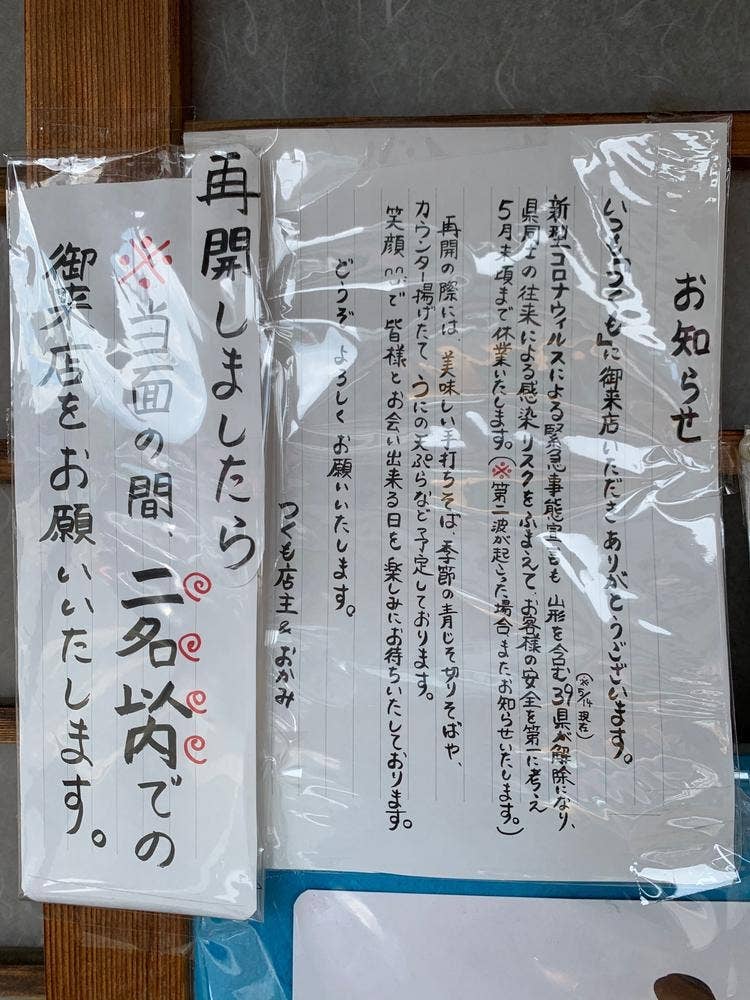 お知らせ
いつも『つくも』に御来店いただきありがとうございます。
(※5/14現在)
新型コロナウィルスによる緊急事態宣言も 山形を含む39県が解除になり、
県同士の往来による感染リスクをふまえて、お客様の安全を第一に考え
5月末頃まで休業いたします。(※第二波が起こった場合、またお知らせいたします。)
再開の際には、美味しい手打ちそば、季節の青じそ切りそばや、
カウンター揚げたて、うにの天ぷらなど予定しております。
笑顔^^で 皆様とお会い出来る日を 楽しみにお待ちいたしております。
どうぞ よろしく お願いいたします。
つくも店主&おかみ
再開しましたら
※当面の間、二名以内での
御来店をお願いいたします。